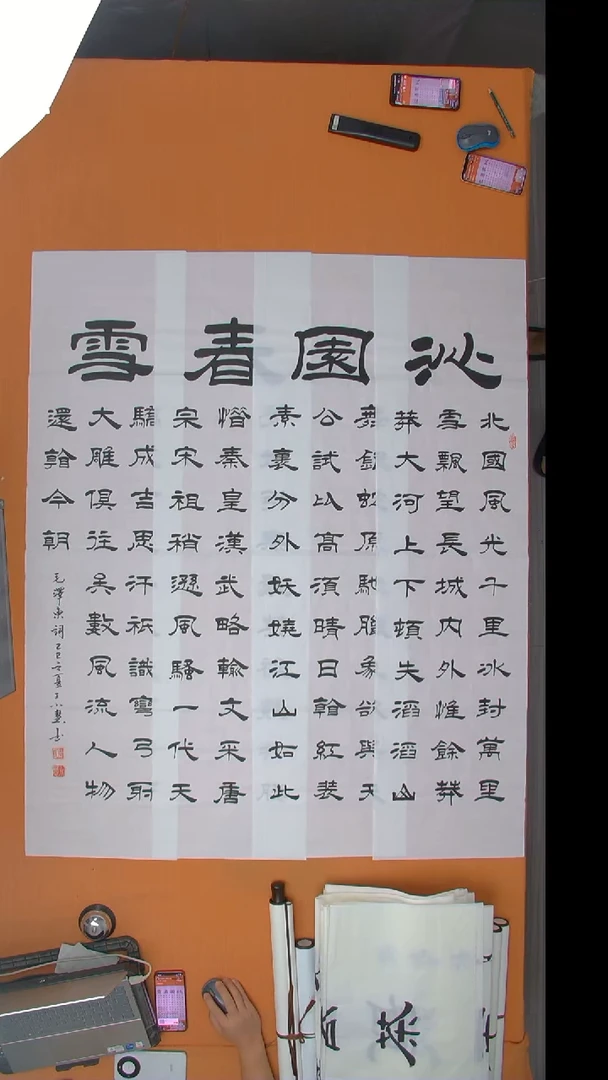 沁園春雪
北國風光千里冰封萬里
雪飄望長城內外惟餘莽
莽大河上下頓失滔滔山
舞銀蛇原馳臘象欲與天
公試比高須晴日看紅裝
素裹分外妖嬈江山如此
惜秦皇漢武略輸文采唐
宗宋祖稍遜風騷一代天
驕成吉思汗祇識彎弓射
大雕俱往矣數風流人物
還看今朝
毛澤東詞乙巳之夏
茶